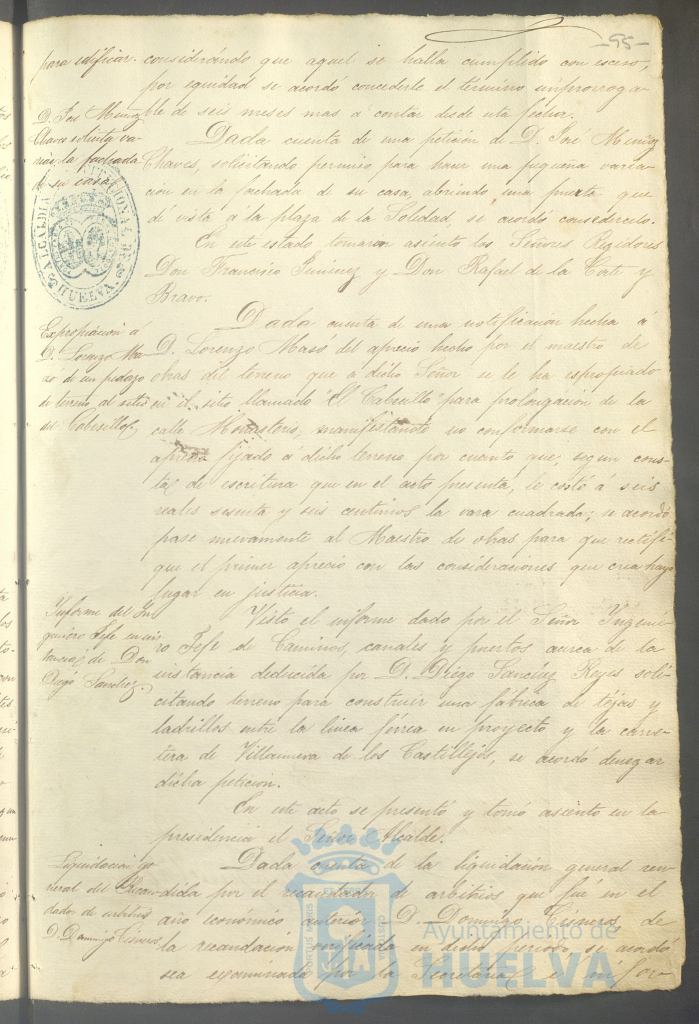 -95-
para edificar. considerando que aquel se halla cumplido con esceso,
por equidad se acordó concederle el término improrroga-
ble de seis meses mas á contar desde esta fecha.
D. José Muñoz
Chaves solicita va-
riar la fachada
de su casa.
Dada cuenta de una petición de D. José Muñoz
Chaves, solicitando permiso para hacer una pequeña varia-
cion en la fachada de su casa, abriendo una puerta que
dé vista á la plaza de la Soledad, se acordó concederelo.
ALCALDIA CONSTITUCIONAL DE HUELVA
En este estado tomaron asiento los Señores Regidores
Don Francisco Jimenez y Don Rafael de la Corte y
Bravo.
Expropiacion á
D. Lorenzo Ma-
zó de un pedazo
de terreno al sitio
del Cabesillo.
Dada cuenta de una notificacion hecha á
D. Lorenzo Masó del aprecio hecho por el maestro de
obras del terreno que á dicho Señor se le ha espropiado
en el sitio llamado El Cabesillo para prolongacion de la
calle Monasterio, manifestando no conformarse con el
aprecio fijado á dicho terreno por cuanto que, segun cons-
ta de escritura que en el acto presenta, le costó á seis
reales sesenta y seis centimos la vara cuadrada; se acordó
pase nuevamente al Maestro de obras para que rectifi-
que el primer aprecio con las consideraciones que crea haya
lugar en justicia.
Informe del In-
geniero Jefe en ins-
tancia de Don
Diego Sanchez.
Visto el informe dado por el Señor Ingenie-
ro Jefe de Caminos, canales y puertos acerca de la
instancia deducida por D. Diego Sanchez Reyes soli-
citando terreno para construir una fábrica de tejas y
ladrillos entre la linea férrea en proyecto y la carre-
tera de Villanueva de los Castillejos, se acordó denegar
dicha peticion.
En este acto se presentó y tomó asiento en la
presidencia el Señor Alcalde.
Liquidacion ge-
neral del Recau-
dador de arbitrios
D. Domingo Cisneros
Dada cuenta de la liquidacion general ren-
dida por el recaudador de arbitrios que fué en el
año económico anterior D. Domingo Cisneros de
la recaudacion verificada en dicho periodo, se acordó
sea examinada por la Secretaria é infor-
Ayuntamiento de
HUELVA